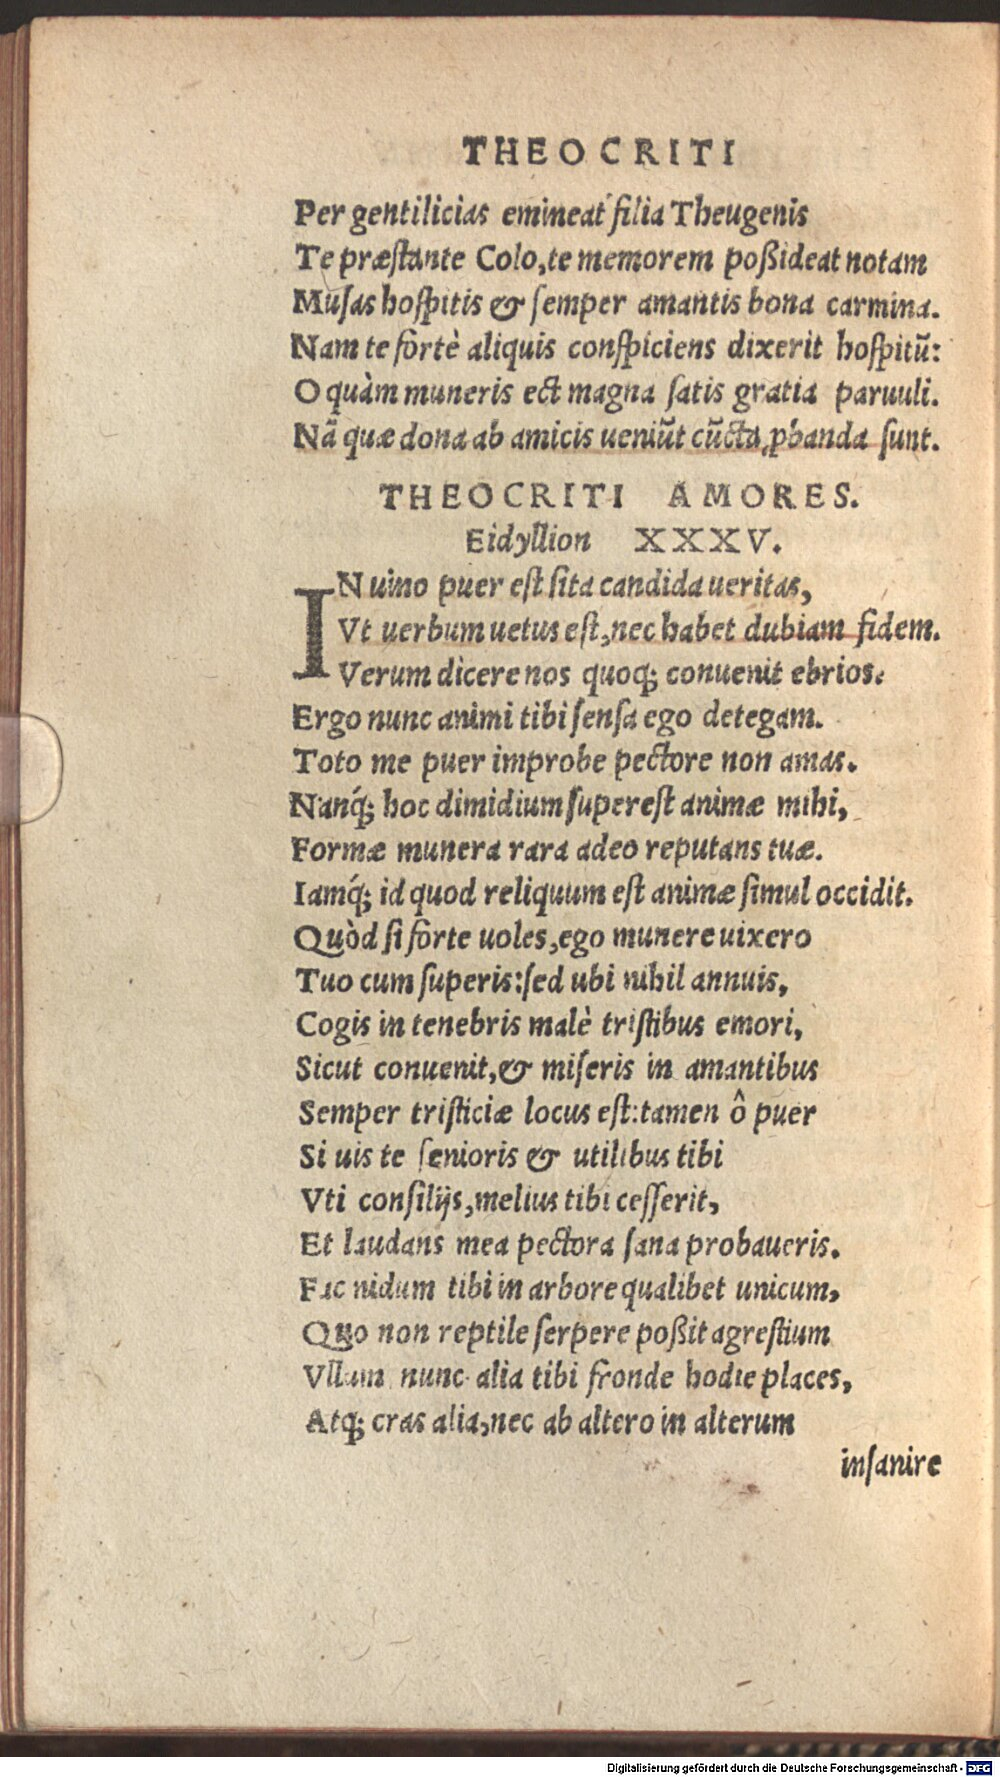 THEOCRITI
Per gentilicias emineat filia Theugenis
Te præstante Colo, te memorem poßideat notam
Musas hospitis & semper amantis bona carmina.
Nam te fortè aliquis conspiciens dixerit hospitū:
O quàm muneris ect magna satis gratia paruuli.
Nā quæ dona ab amicis ueniūt cūcta, ꝓbanda sunt.
THEOCRITI AMORES.
Eidyllion XXXV.
IN uino puer est sita candida ueritas,
Vt uerbum uetus est, nec habet dubiam fidem.
Verum dicere nos quoq; conuenit ebrios.
Ergo nunc animi tibi sensa ego detegam.
Toto me puer improbe pectore non amas.
Nanq́; hoc dimidium superest animæ mihi,
Formæ munera rara adeo reputans tuæ.
Iamq́; id quod reliquum est animæ simul occidit.
Quòd si forte uoles, ego munere uixero
Tuo cum superis: sed ubi nihil annuis,
Cogis in tenebris malè tristibus emori,
Sicut conuenit, & miseris in amantibus
Semper tristiciæ locus est: tamen ô puer
Si uis te senioris & utilibus tibi
Vti consilijs, melius tibi cesserit,
Et laudans mea pectora sana probaueris.
Fac nidum tibi in arbore qualibet unicum,
Quo non reptile serpere poßit agrestium
Vllum nunc alia tibi fronde hodie places,
Atq; cras alia, nec ab altero in alterum
insanire
Digitalisierung gefördert durch die Deutsche Forschungsgemeinschaft - DFG